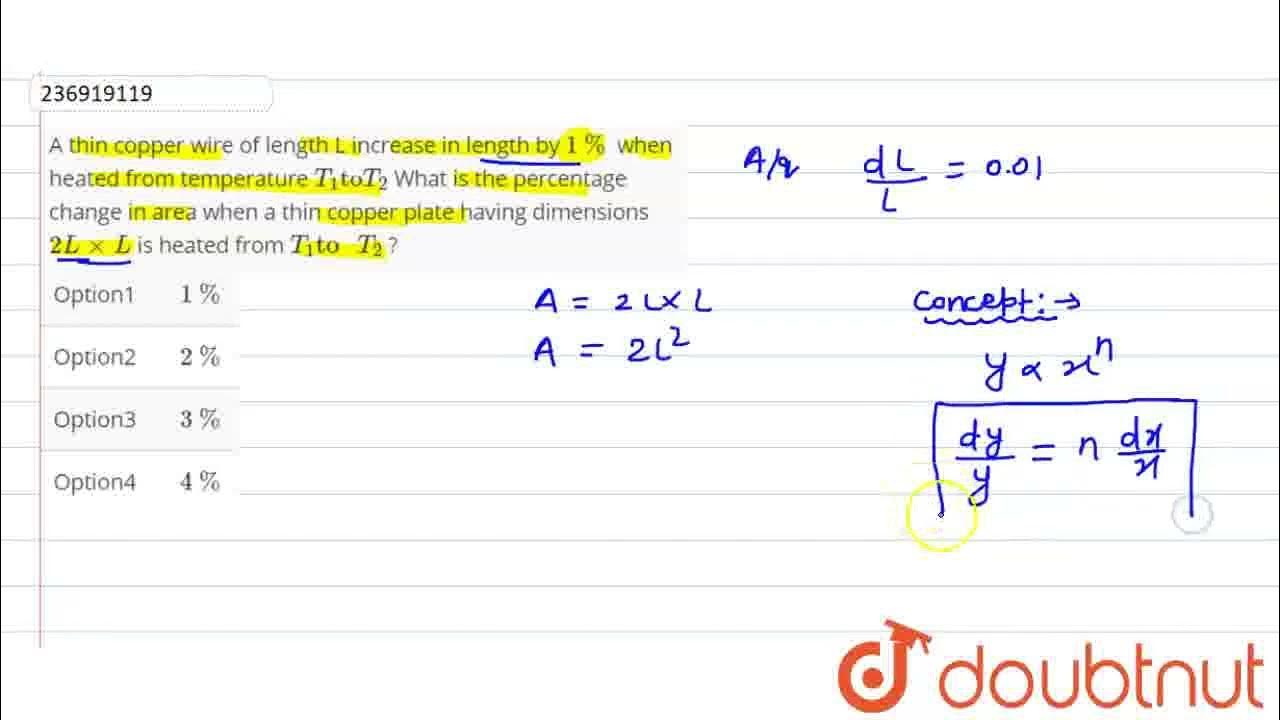 236919119
A thin copper wire of length L increase in length by 1 % when
heated from temperature T₁toT₂ What is the percentage
change in area when a thin copper plate having dimensions
2L × L is heated from T₁to T₂ ?
Option1 1 %
Option2 2 %
Option3 3 %
Option4 4 %
A/q dL/L = 0.01
A = 2L× L
A = 2L²
Concept:→
y ∝ xⁿ
dy/y = n dx/x
doubtnut